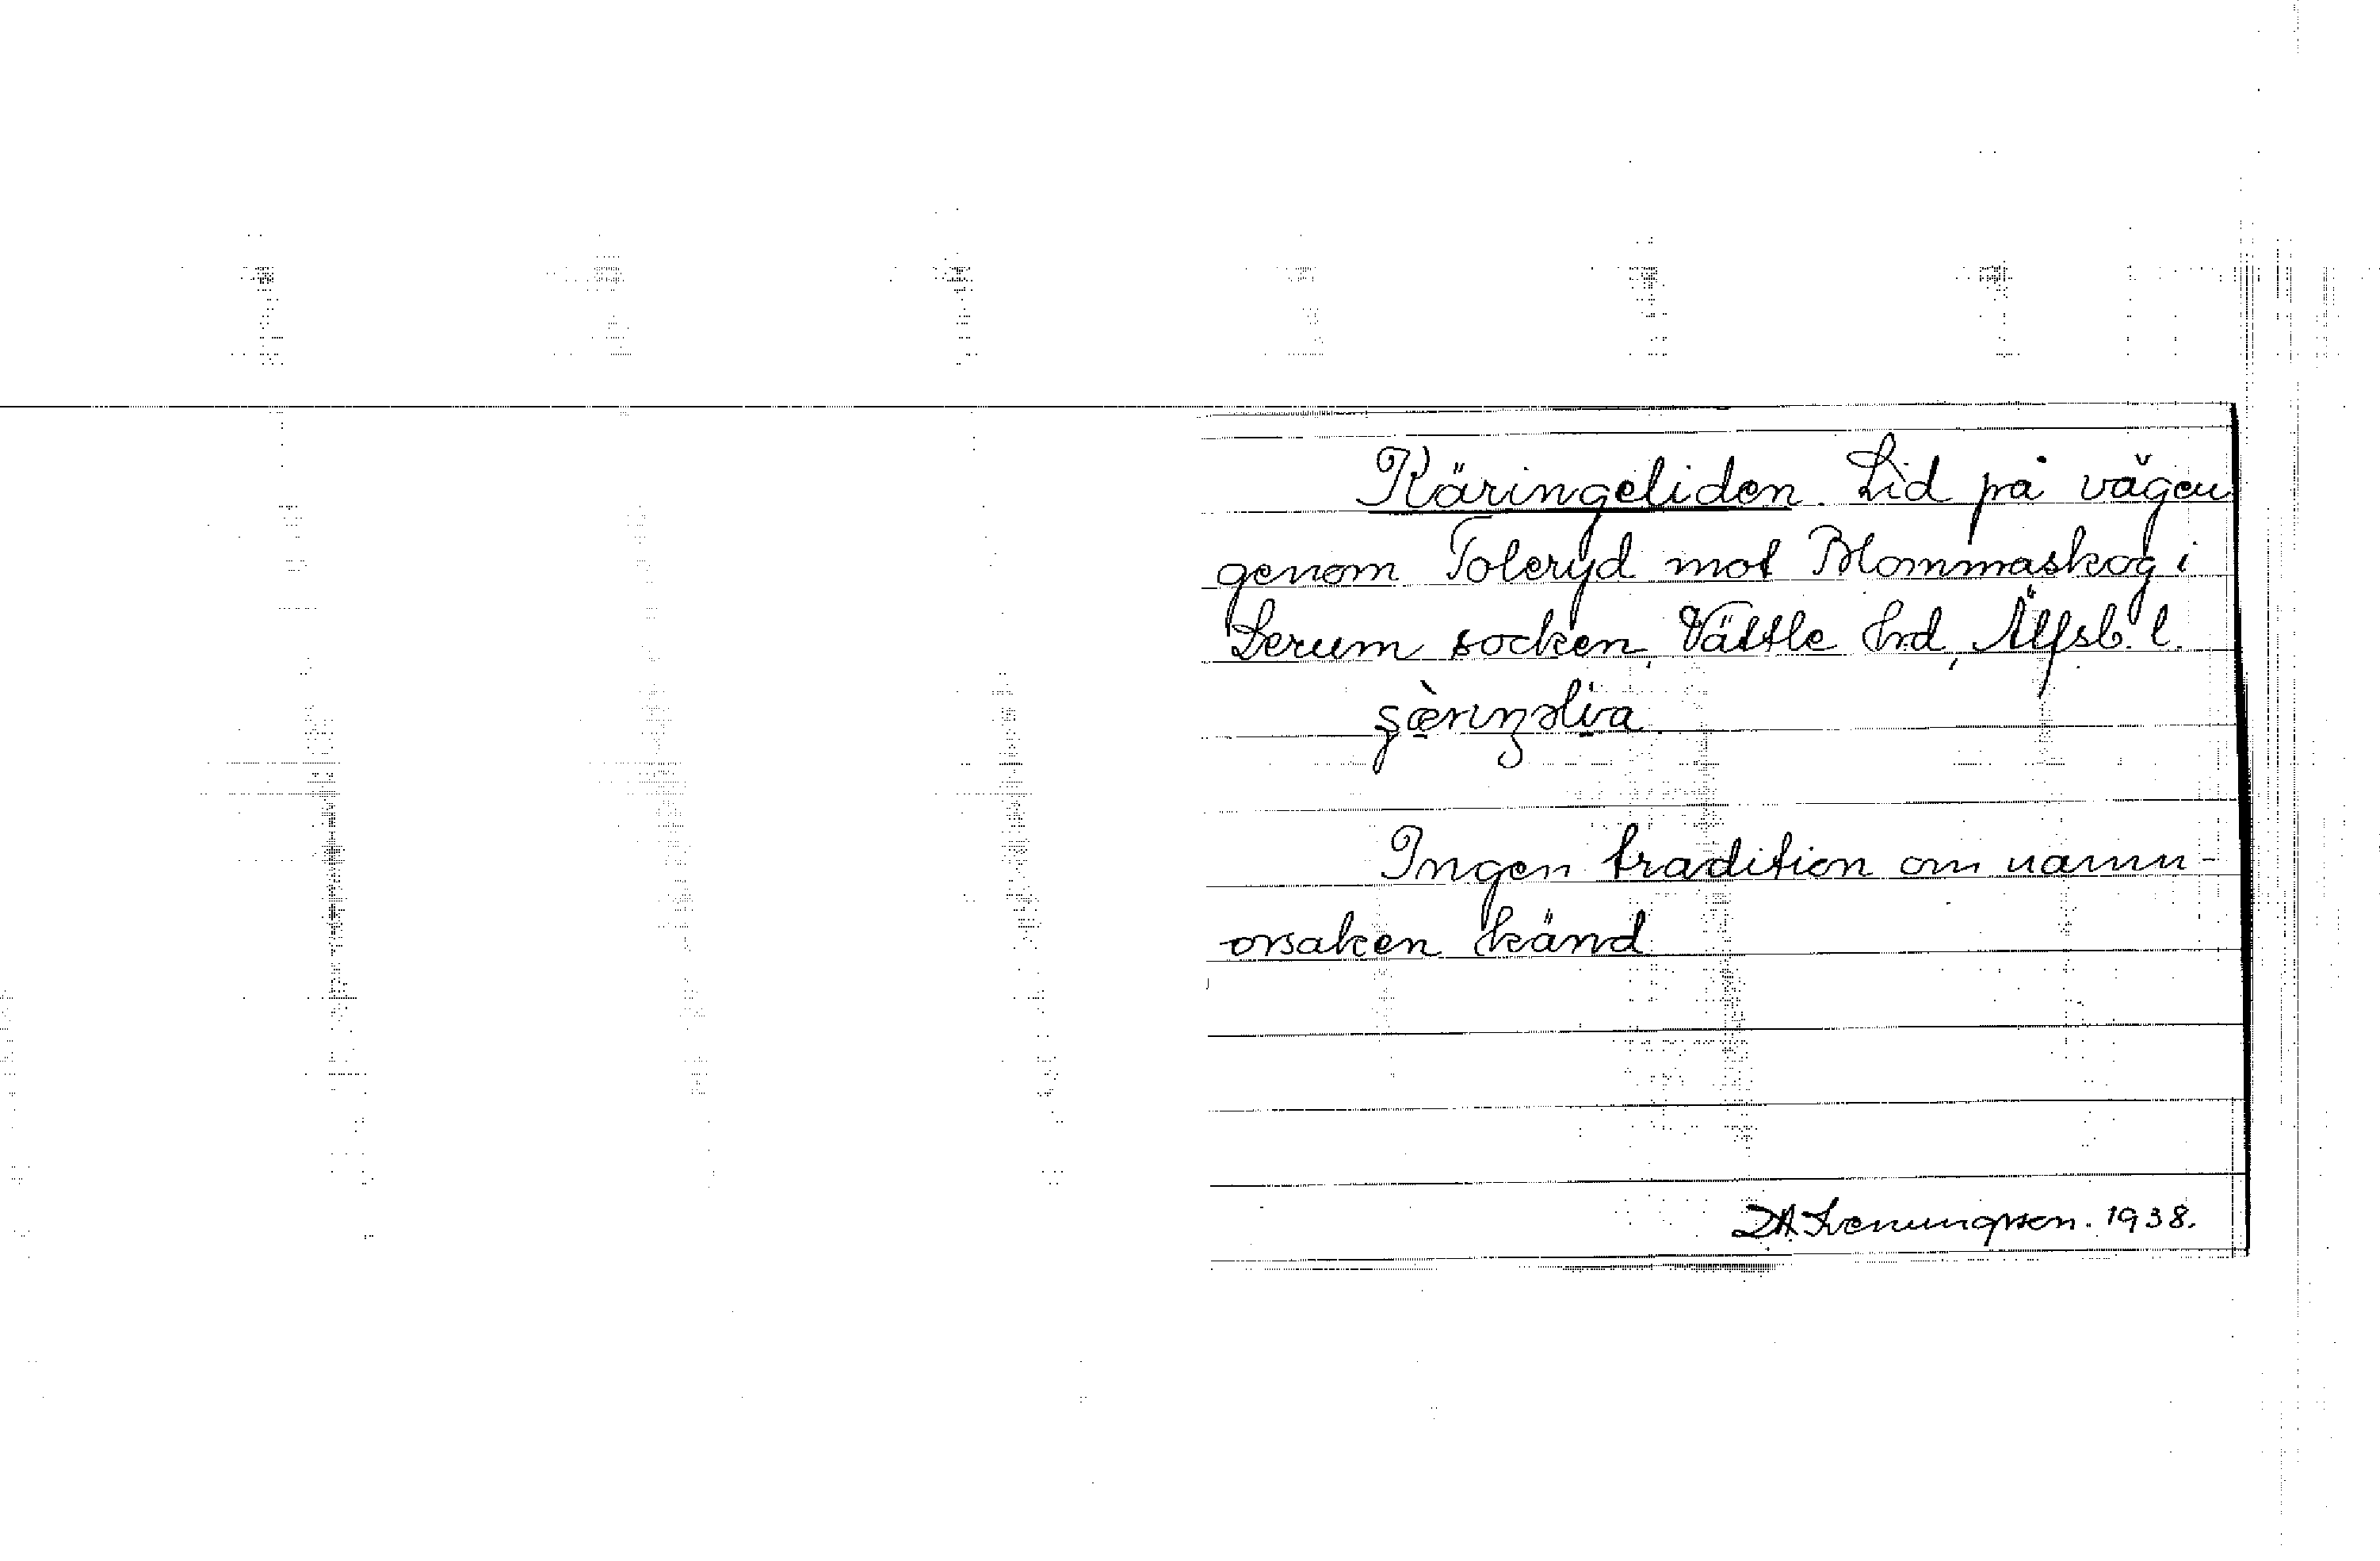 Käringeliden. Lid på vägen
genom Toleryd mot Blommaskog i
Lerum socken, Vättle hrd, Älfsb. l.
Ingen tradition om namn-
orsaken känd
D.A. Svenungsson. 1938.